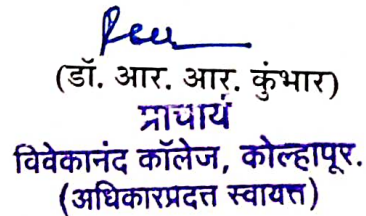 (डॉ. आर. आर. कुंभार)
प्राचार्य
विवेकानंद कॉलेज, कोल्हापूर.
(अधिकारप्रदत्त स्वायत्त)